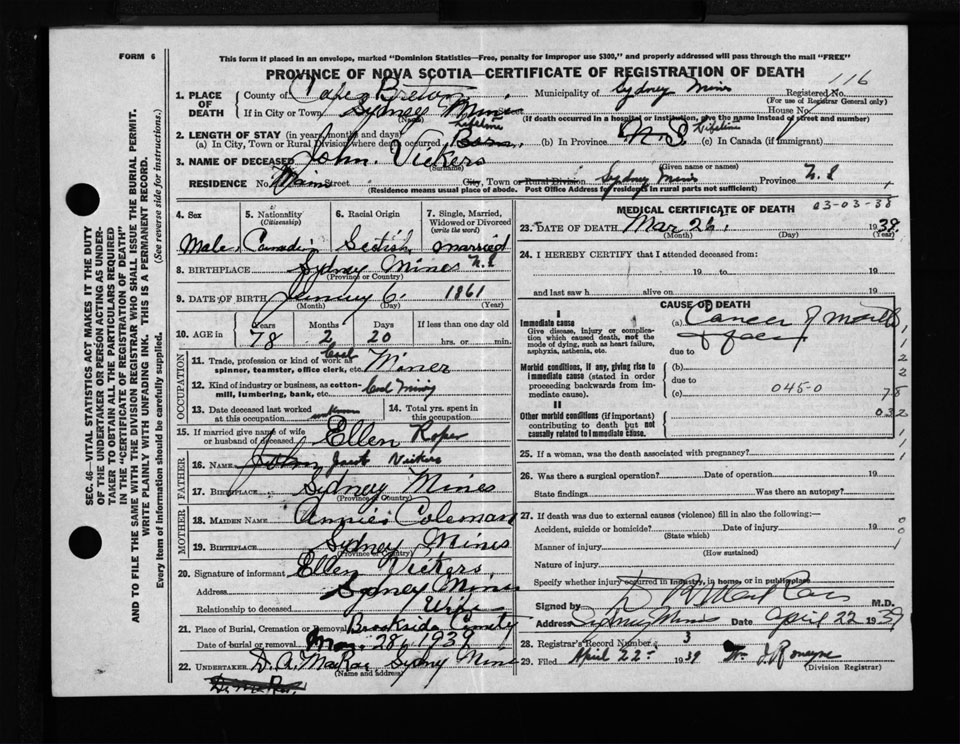 FORM 6
This form if placed in an envelope, marked "Dominion Statistics—Free, penalty for improper use $300," and properly addressed will pass through the mail "FREE"
PROVINCE OF NOVA SCOTIA—CERTIFICATE OF REGISTRATION OF DEATH
116
1. PLACE OF DEATH
County of Cape Breton Municipality of Sydney Mines Registered No.
(For use of Registrar General only)
If in City or Town Sydney Mines House No.
(Name) (If death occurred in a hospital or institution, give the name instead of street and number)
2. LENGTH OF STAY (in years, months and days)
(a) In City, Town or Rural Division where death occurred Lifetime (b) In Province N.S. Lifetime (c) In Canada (if immigrant)
3. NAME OF DECEASED John Vickers
(Surname) (Given name or names)
RESIDENCE No. Main Street City, Town or Rural Division Sydney Mines Province N.S.
(Residence means usual place of abode. Post Office Address for residents in rural parts not sufficient)
4. Sex 5. Nationality (Citizenship) 6. Racial Origin 7. Single, Married, Widowed or Divorced (write the word)
Male Canadian Scotish married
8. BIRTHPLACE Sydney Mines N.S
(Province or Country)
9. DATE OF BIRTH 6 1861
(Month) (Day) (Year)
10. AGE in Years Months Days If less than one day old
78 2 20 hrs. or min.
OCCUPATION
11. Trade, profession or kind of work as spinner, teamster, office clerk, etc. Coal Miner
12. Kind of industry or business, as cotton-mill, lumbering, bank, etc. Coal Mining
13. Date deceased last worked at this occupation unknown 14. Total yrs. spent in this occupation
15. If married give name of wife or husband of deceased Ellen Roper
FATHER
16. NAME John Vickers
17. BIRTHPLACE Sydney Mines
(Province or Country)
MOTHER
18. MAIDEN NAME Annie Coleman
19. BIRTHPLACE Sydney Mines
(Province or Country)
20. Signature of informant Ellen Vickers
Address Sydney Mines
Relationship to deceased Wife
21. Place of Burial, Cremation or Removal Brookside Cemetery
Date of burial or removal 28, 1939
22. UNDERTAKER D. A. MacRae Sydney Mines
(Name and address)
MEDICAL CERTIFICATE OF DEATH 03-03-38
23. DATE OF DEATH Mar 26, 1939
(Month) (Day) (Year)
24. I HEREBY CERTIFY that I attended deceased from:
19 to 19
and last saw h alive on 19
CAUSE OF DEATH
I
Immediate cause
Give disease, injury or complication which caused death, not the mode of dying, such as heart failure, asphyxia, asthenia, etc.
(a) Cancer of mouth & face
due to
Morbid conditions, if any, giving rise to immediate cause (stated in order proceeding backwards from immediate cause).
(b)
due to
(c) 045-0
II
Other morbid conditions (if important) contributing to death but not causally related to immediate cause.
1
1
2
2
78
032
1
1
25. If a woman, was the death associated with pregnancy?
26. Was there a surgical operation? Date of operation 19
State findings Was there an autopsy?
27. If death was due to external causes (violence) fill in also the following:—
Accident, suicide or homicide? Date of injury 19
(State which)
Manner of injury
(How sustained)
Nature of injury
Specify whether injury occurred in industry, in home, or in public place
0
0
1
Signed by M.D.
Address Sydney Mines Date April 22 1939
28. Registrar's Record Number 3
29. Filed April 22 1939
(Division Registrar)
SEC. 46—VITAL STATISTICS ACT MAKES IT THE DUTY
OF THE UNDERTAKER OR PERSON ACTING AS UNDERTAKER
TO OBTAIN ALL THE PARTICULARS REQUIRED
IN THE "CERTIFICATE OF REGISTRATION OF DEATH"
AND TO FILE THE SAME WITH THE DIVISION REGISTRAR WHO SHALL ISSUE THE BURIAL PERMIT.
WRITE PLAINLY WITH UNFADING INK. THIS IS A PERMANENT RECORD.
Every item of information should be carefully supplied. (See reverse side for instructions.)